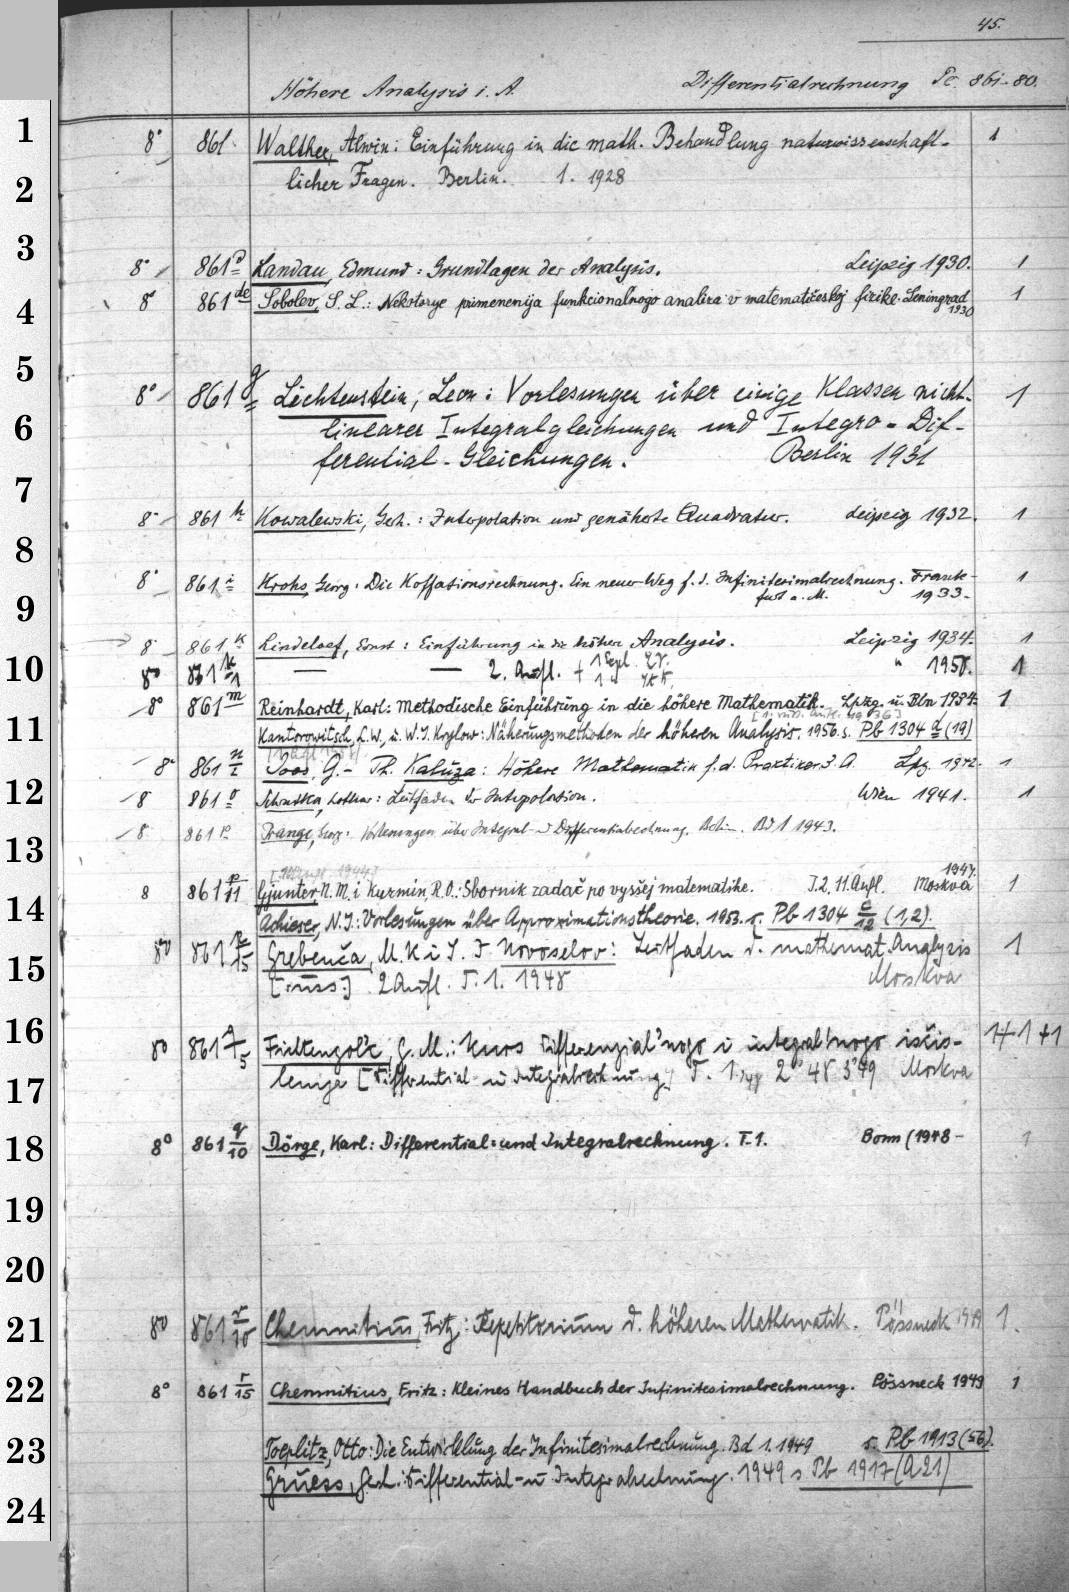 45.
Höhere Analysis i. A. Differentialrechnung Pc. 861-80.
1
8° 861. Walther, Alwin: Einführung in die math. Behandlung naturwissenschaft- 1
2
licher Fragen. Berlin. 1. 1928
3
8° 861 Landau, Edmund: Grundlagen der Analysis. Leipzig 1930. 1
4
8° 861 de Sobolev, S. L.: Nekotorye primenenija funkcional'nogo analiza v matematičeskoj fizike. Leningrad 1
1930
5
8° 861 g Lichtenstein, Leon: Vorlesungen über einige Klassen nicht- 1
6
linearer Integralgleichungen und Integro-Dif-
ferential-Gleichungen. Berlin 1931
7
8° 861 h Kowalewski, Gerh.: Interpolation und genäherte Quadratur. Leipzig 1932. 1
8
8° 861 i Krohs, Georg: Die Koffationsrechnung. Ein neuer Weg f. d. Infinitesimalrechnung. Frank- 1
furt a. M. 1933.
9
8° 861 k Lindeloef, Ernst: Einführung in die höhere Analysis. Leipzig 1934. 1
10
8° 861 k/1 — — 2. Aufl. + 1 Expl. " 1950. 1
8° 861 m Reinhardt, Karl: Methodische Einführung in die höhere Mathematik. Lpzg. u. Bln 1934 1
11
Kantorowitsch, L.W., u. W.I. Krylow: Näherungsmethoden der höheren Analysis. 1956. s. Pb 1304 d (19)
8° 861 n/1 Joos, G. - Th. Kaluza: Höhere Mathematik f. d. Praktiker. 3. A. Lpz. 1942. 1
12
8 861 o Schrutka, Lothar: Leitfaden der Interpolation. Wien 1941. 1
13
8 861 p Prange, Georg: Vorlesungen über Integral- u Differentialrechnung. Berlin. Bd 1 1943.
14
8 861 p/11 Gjunter, N. M. i Kuzmin, R. O.: Sbornik zadač po vysšej matematike. T. 2. 11. Aufl. Moskva 1947. 1
Achieser, N. I.: Vorlesungen über Approximationstheorie. 1953. s. Pb 1304 c/12 (1,2).
15
8° 861 p/15 Grebenča, M. K i S. I Novoselov: Leitfaden d. mathemat. Analysis 1
[russ.] 2 Aufl. T. 1. 1948 Moskva
16
8° 861 Fichtengol'c, G. M.: Kurs differenzial'nogo i integral'nogo isčis- 1+1+1
17
lenija [Differential- u Integralrechnung] T. 1 2 48 3 49 Moskva
18
8° 861 q/10 Dörge, Karl: Differential- und Integralrechnung. T. 1. Bonn (1948 - 1
19
20
21
8° 861 r/10 Chemnitius, Fritz: Repetitorium d. höheren Mathematik. Pössneck 1949 1.
22
8° 861 r/15 Chemnitius, Fritz: Kleines Handbuch der Infinitesimalrechnung. Pössneck 1949 1
23
Toeplitz, Otto: Die Entwicklung der Infinitesimalrechnung. Bd 1. 1949 s. Pb 1913 (56).
24
Gruess, Gerh.: Differential- u Integralrechnung. 1949 s Pb 1917 (A 21)